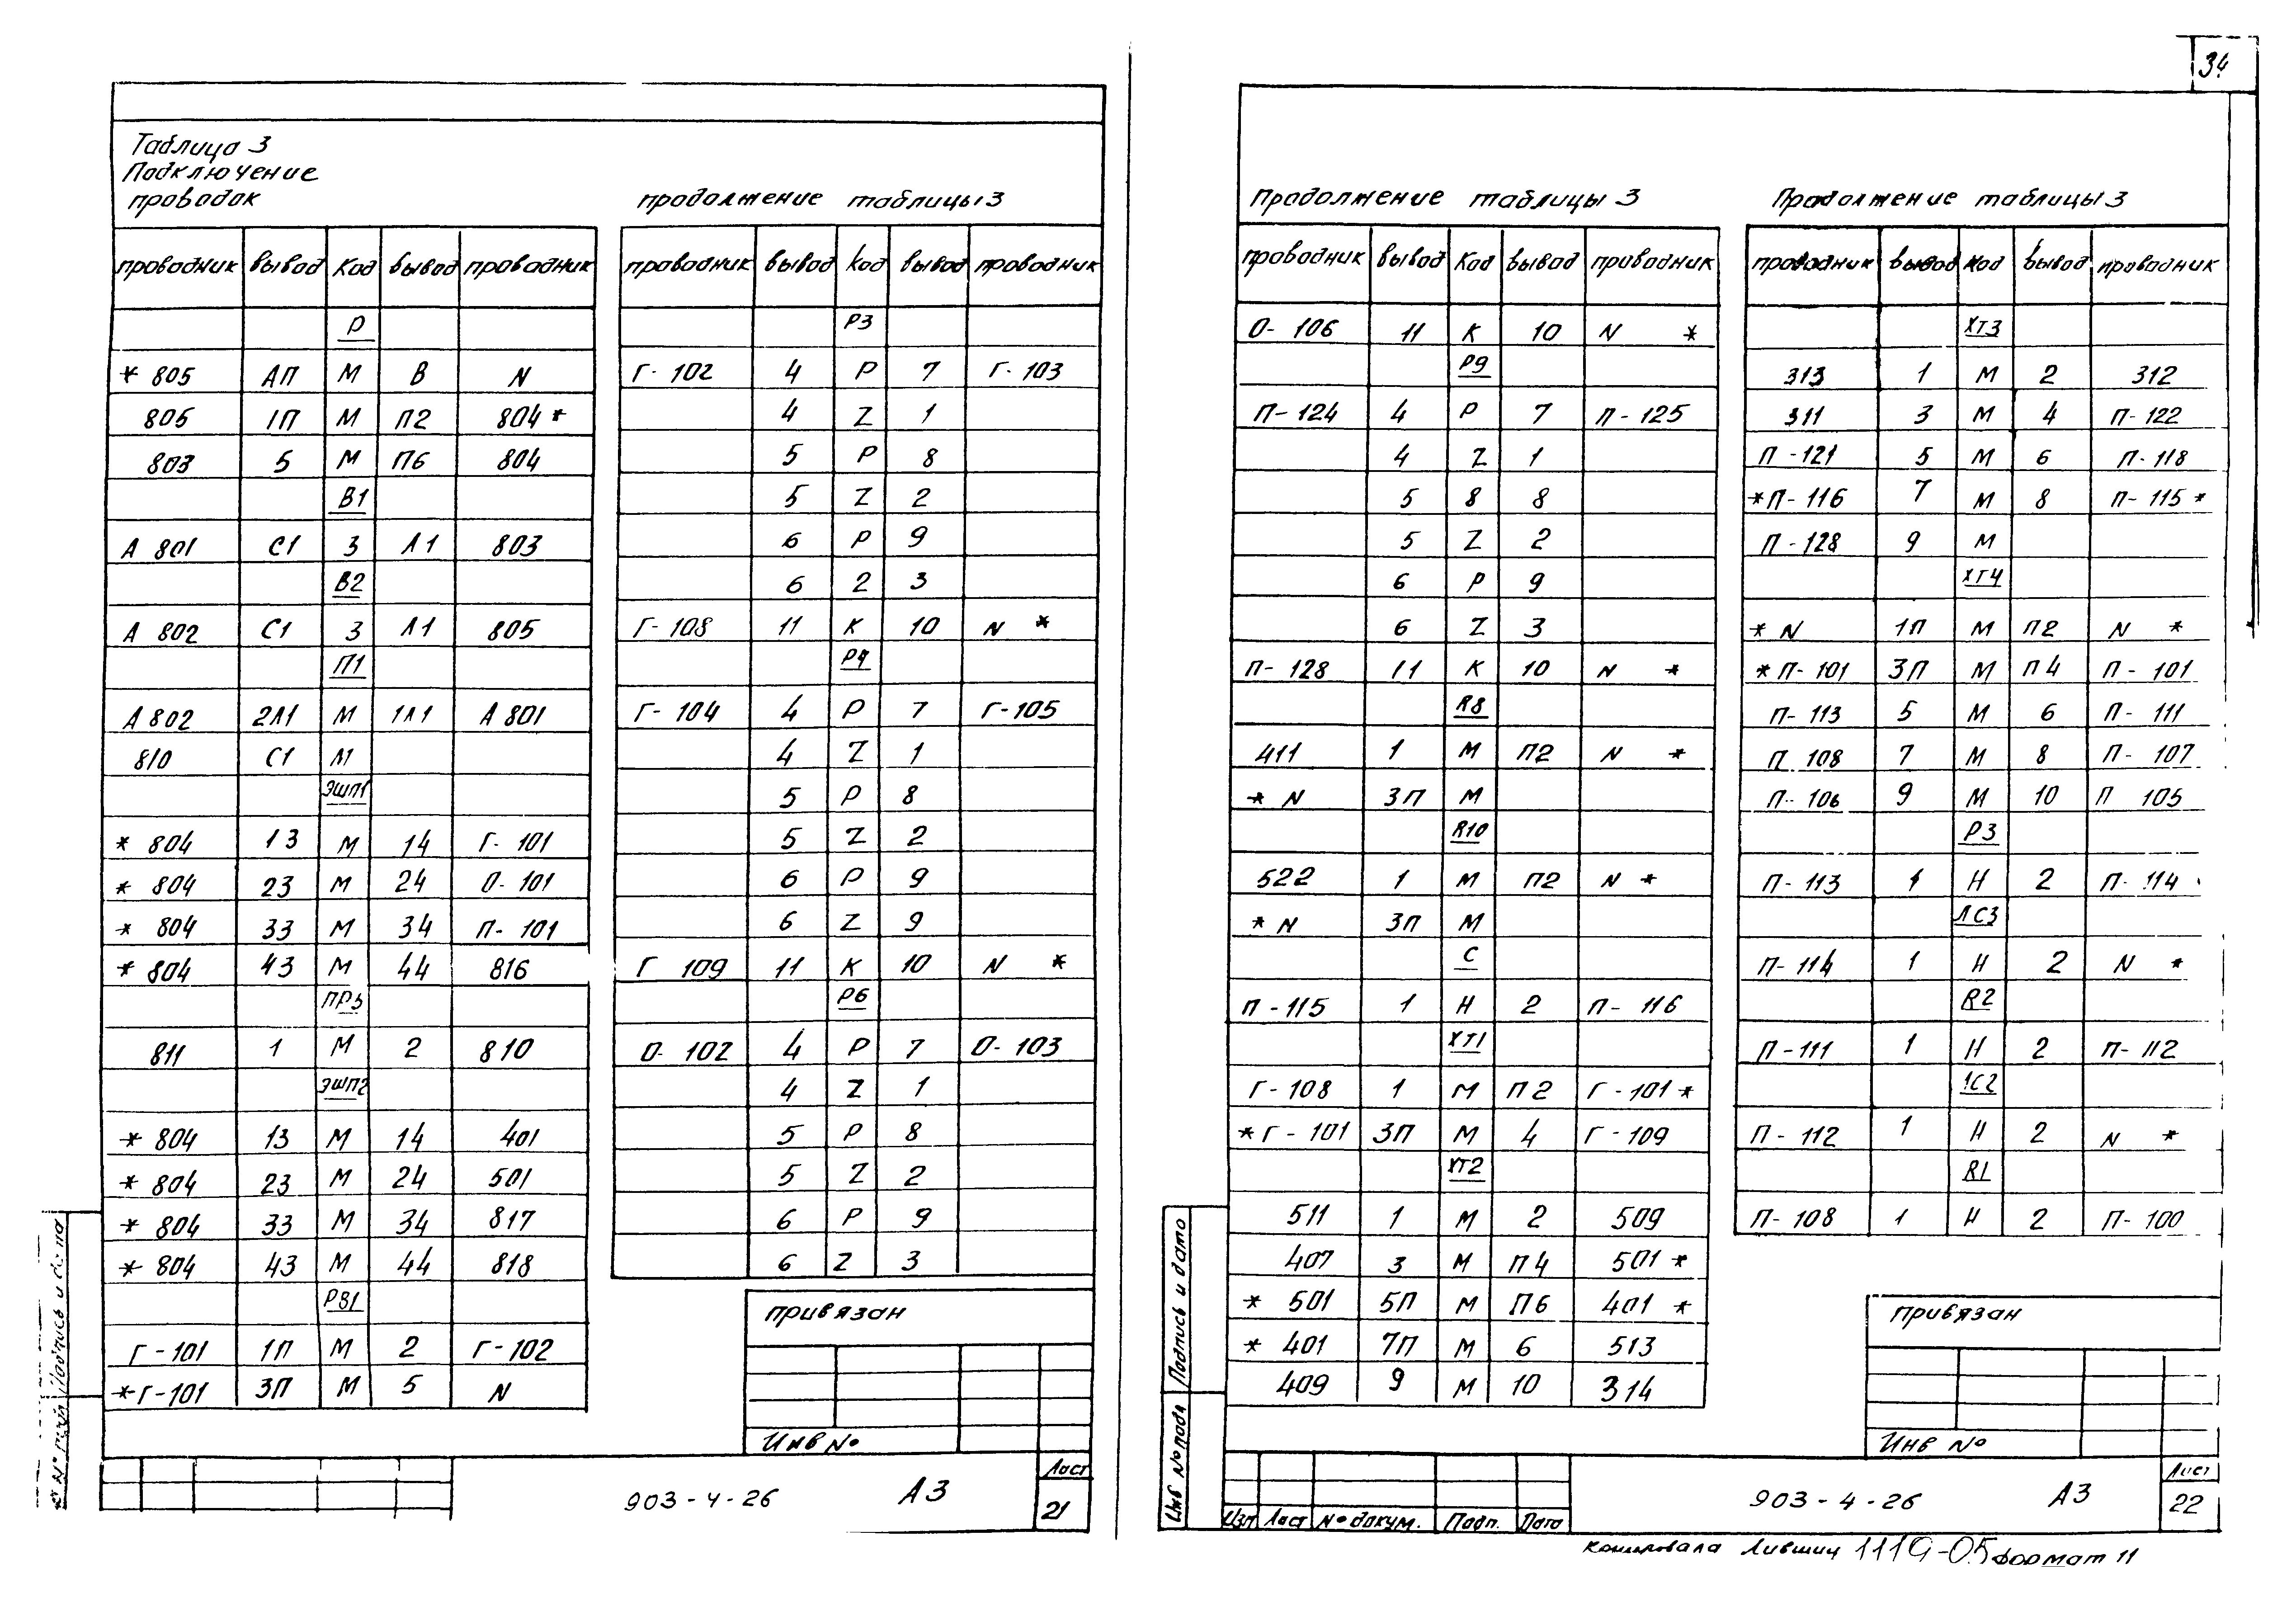 34
Таблица 3
Подключение
проводок
проводник вывод Код вывод проводник
Р
* 805 АП М В N
805 1П М П2 804 *
803 5 М П6 804
В1
А 801 С1 З Л1 803
В2
А 802 С1 З Л1 805
П1
А 802 2Л1 М 1Л1 А 801
810 С1 М
ЭШП1
* 804 13 М 14 Г- 101
* 804 23 М 24 О- 101
* 804 33 М 34 П- 101
* 804 43 М 44 816
ПР3
811 1 М 2 810
ЭШП2
* 804 13 М 14 401
* 804 23 М 24 501
* 804 33 М 34 817
* 804 43 М 44 818
РВ1
Г-101 1П М 2 Г-102
* Г-101 3П М 5 N
продолжение таблицы 3
проводник вывод код вывод проводник
Р3
Г- 102 4 Р 7 Г- 103
4 Z 1
5 Р 8
5 Z 2
6 Р 9
6 2 3
Г- 108 11 К 10 N *
Р4
Г- 104 4 Р 7 Г-105
4 Z 1
5 Р 8
5 Z 2
6 Р 9
6 Z 9
Г 109 11 К 10 N *
Р6
О- 102 4 Р 7 О- 103
4 Z 1
5 Р 8
5 Z 2
6 Р 9
6 Z 3
привязан
Инв №
903-4-26 А3
Лист
21
Продолжение таблицы 3
проводник вывод Код вывод проводник
О- 106 11 К 10 N *
Р9
П- 124 4 Р 7 П- 125
4 Z 1
5 8 8
5 Z 2
6 Р 9
6 Z 3
П- 128 11 К 10 N *
R8
411 1 М П2 N *
* N 3П М
R10
522 1 М П2 N *
* N 3П М
С
П - 115 1 Н 2 П- 116
ХТ1
Г- 108 1 М П2 Г-101 *
* Г- 101 3П М 4 Г-109
ХТ2
511 1 М 2 509
407 3 М П4 501 *
* 501 5П М П6 401 *
* 401 7П М 6 513
409 9 М 10 314
Продолжение таблицы 3
проводник вывод Код вывод проводник
ХТ3
313 1 М 2 312
311 3 М 4 П- 122
П -121 5 М 6 П- 118
* П- 116 7 М 8 П- 115 *
П -128 9 М
ХТ4
* N 1П М П2 N *
* П- 101 3П М П4 П- 101
П- 113 5 М 6 П- 111
П 108 7 М 8 П- 107
П- 106 9 М 10 П 105
Р3
П- 113 1 Н 2 П- 114
ЛС3
П- 114 1 Н 2 N *
R2
П- 111 1 Н 2 П- 112
1С2
П- 112 1 Н 2 N *
R1
П- 108 1 Н 2 П- 100
Привязан
Инв №
Подпись и дата
Инв № подл
Изм Лист № докум. Подп. Дата
903-4-26 А3
Лист
22
Копировала Лившиц 1119-05 формат 11